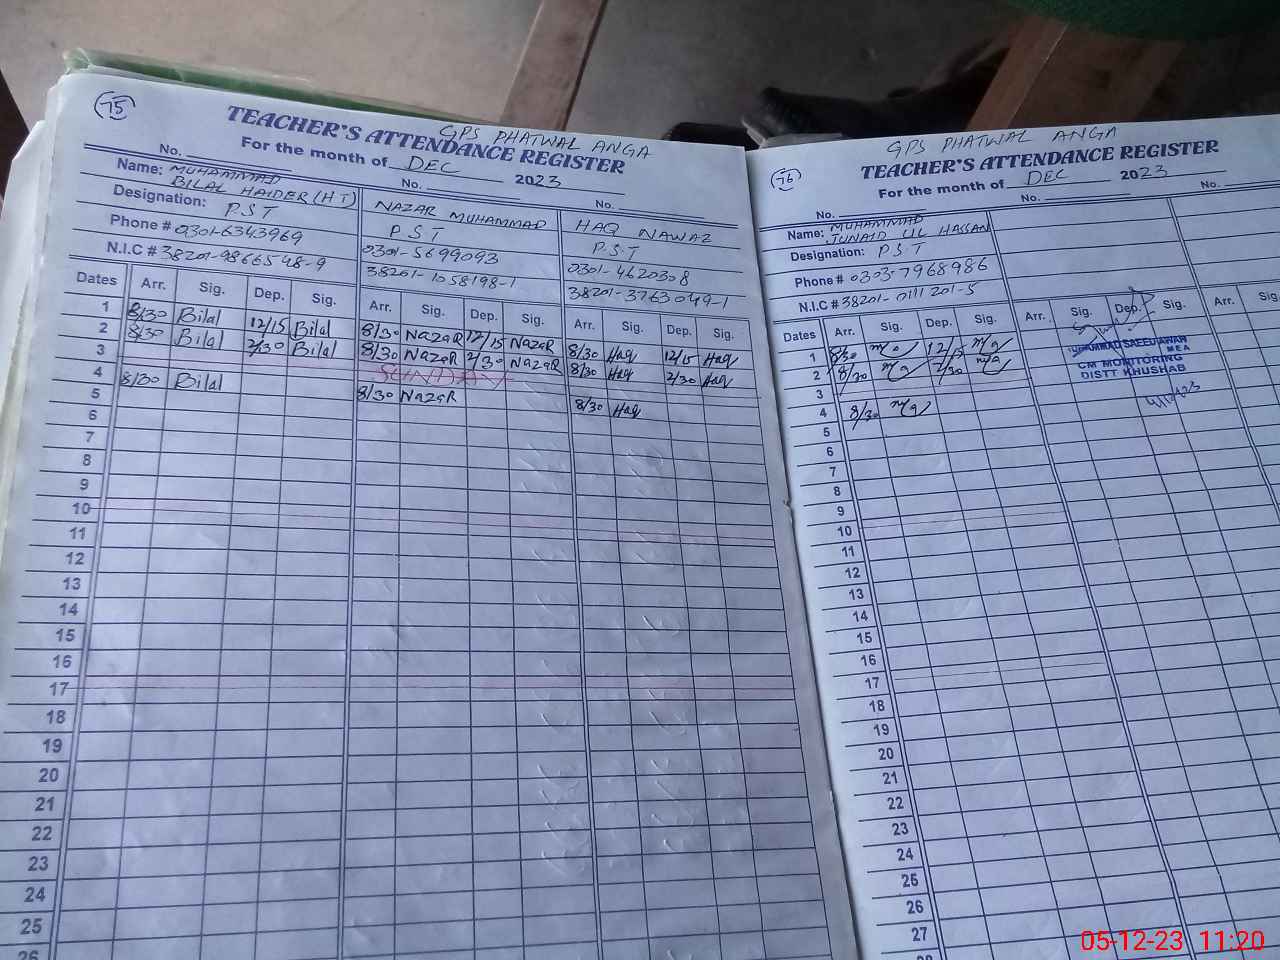 75
GPS PHATWAL ANGA
TEACHER'S ATTENDANCE REGISTER
For the month of DEC 2023
No. No. No.
Name: MUHAMMAD BILAL HAIDER (HT) NAZAR MUHAMMAD HAQ NAWAZ
Designation: P.S.T P.S.T P.S.T
Phone # 0301-6343969 0301-5699093 0301-4620308
N.I.C # 38201-9866548-9 38201-1058198-1 38201-3763049-1
Dates Arr. Sig. Dep. Sig. Arr. Sig. Dep. Sig. Arr. Sig. Dep. Sig.
1 8/30 Bilal 12/15 Bilal 8/30 NazaR 12/15 NazaR 8/30 Haq 12/15 Haq
2 8/30 Bilal 2/30 Bilal 8/30 NazaR 2/30 NazaR 8/30 Haq 2/30 Haq
3 SUNDAY
4 8/30 Bilal 8/30 NazaR 8/30 Haq
5
6
7
8
9
10
11
12
13
14
15
16
17
18
19
20
21
22
23
24
25
26
76
GPS PHATWAL ANGA
TEACHER'S ATTENDANCE REGISTER
For the month of DEC 2023
No. No. No.
Name: MUHAMMAD JUNAID UL HASSAN
Designation: P.S.T
Phone # 0303-7968986
N.I.C # 38201-0111201-5
Dates Arr. Sig. Dep. Sig. Arr. Sig. Dep. Sig. Arr.
1 8/30 12/15
2 8/30 2/30
3
4 8/30
5
6
7
8
9
10
11
12
13
14
15
16
17
18
19
20
21
22
23
24
25
26
27
28
MUHAMMAD SAEED AWAN
MEA
CM MONITORING
DISTT KHUSHAB
05-12-23 11:20